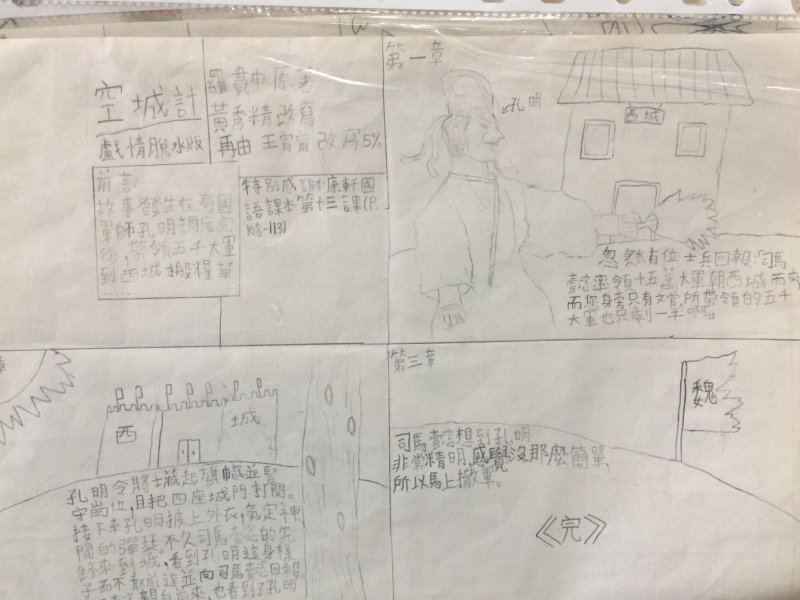 空城計
戲情脫水版
羅貫中原著
黃秀精改寫
再由王宥甯改寫5%
前言:
故事發生在蜀國
軍師孔明調度完
後,帶領五千大軍
到西城搬糧草
……
特別感謝:康軒國
語課本第十三課(P.
108-113)
第一章
孔明
西城
忽然有位士兵回報:「司馬
懿率領十五萬大軍朝西城而來
而您身旁只有文官,所帶領的五千
大軍也只剩一半啊!」
章
西
城
孔明令將士藏起旗幟並堅
守崗位,且把四座城門打開。
接下來孔明披上外衣,氣定神
閒的彈琴。不久司馬懿的生
錄來到城,看到孔明這身樣
子而不敢前進並向司馬懿回報。
親自前來,也看到了孔明
第三章
魏
司馬懿想到孔明
非常精明,感覺沒那麼簡單,
所以馬上撤軍。
《完》